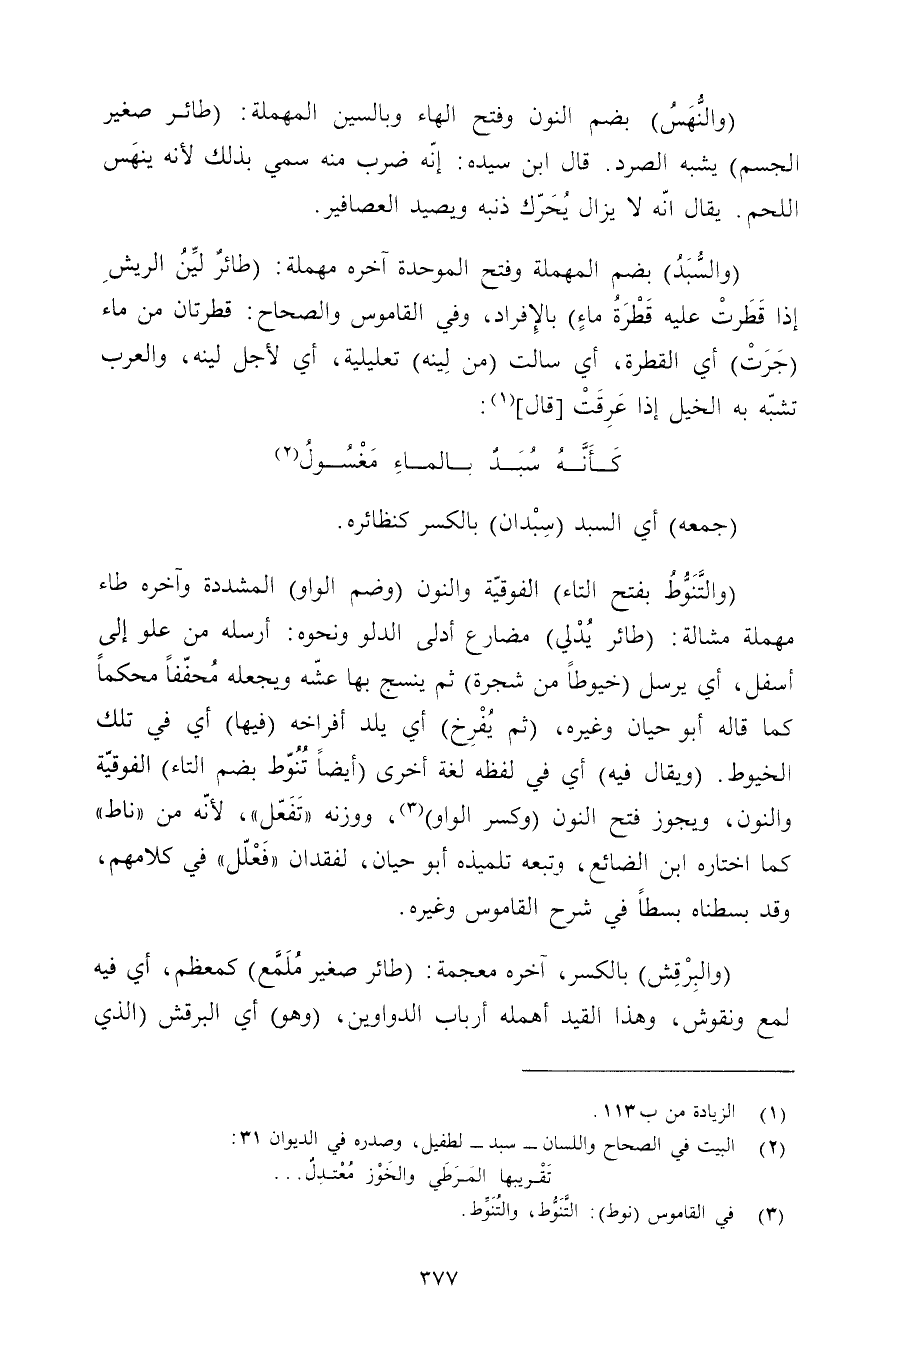 (والنُّهَسُ) بضم النون وفتح الهاء وبالسين المهملة: (طائر صغير
الجسم) يشبه الصرد. قال ابن سيده: إنّه ضرب منه سمي بذلك لأنه ينهَس
اللحم. يقال انّه لا يزال يُحَرّك ذنبه ويصيد العصافير.
(والسُّبَدُ) بضم المهملة وفتح الموحدة آخره مهملة: (طائرٌ ليِّنُ الريشِ
إذا قَطَرتْ عليه قَطْرَةُ ماءٍ) بالإفراد، وفي القاموس والصحاح: قطرتان من ماء
(جَرَتْ) أي القطرة، أي سالت (من لِينه) تعليلية، أي لأجل لينه، والعرب
تشبّه به الخيل إذا عَرِقَتْ [قال](١):
كَأَنَّهُ سُبَدٌ بالماءِ مَغْسُولُ(٢)
(جمعه) أي السبد (سِبْدان) بالكسر كنظائره.
(والتَّنَوُّطُ بفتح التاء) الفوقيّة والنون (وضم الواو) المشددة وآخره طاء
مهملة مشالة: (طائر يُدْلي) مضارع أدلى الدلو ونحوه: أرسله من علو إلى
أسفل، أي يرسل (خيوطاً من شجرة) ثم ينسج بها عشّه ويجعله مُحفّفاً محكماً
كما قاله أبو حيان وغيره، (ثم يُفْرِخ) أي يلد أفراخه (فيها) أي في تلك
الخيوط. (ويقال فيه) أي في لفظه لغة أخرى (أيضاً تُنُوّط بضم التاء) الفوقيّة
والنون، ويجوز فتح النون (وكسر الواو)(٣)، ووزنه «تَفَعّل»، لأنّه من «ناط»
كما اختاره ابن الضائع، وتبعه تلميذه أبو حيان، لفقدان «فَعْلّل» في كلامهم،
وقد بسطناه بسطاً في شرح القاموس وغيره.
(والبِرْقِش) بالكسر، آخره معجمة: (طائر صغير مُلَمَّع) كمعظم، أي فيه
لمع ونقوش، وهذا القيد أهمله أرباب الدواوين، (وهو) أي البرقش (الذي
(١) الزيادة من ب١١٣.
(٢) البيت في الصحاح واللسان - سبد - لطفيل، وصدره في الديوان ٣١:
تَقْريبها المَرَطَي والخَوْز مُعْتدِلٌ...
(٣) في القاموس (نوط): التَّنَوُّط، والتُنَوِّط.
٣٧٧